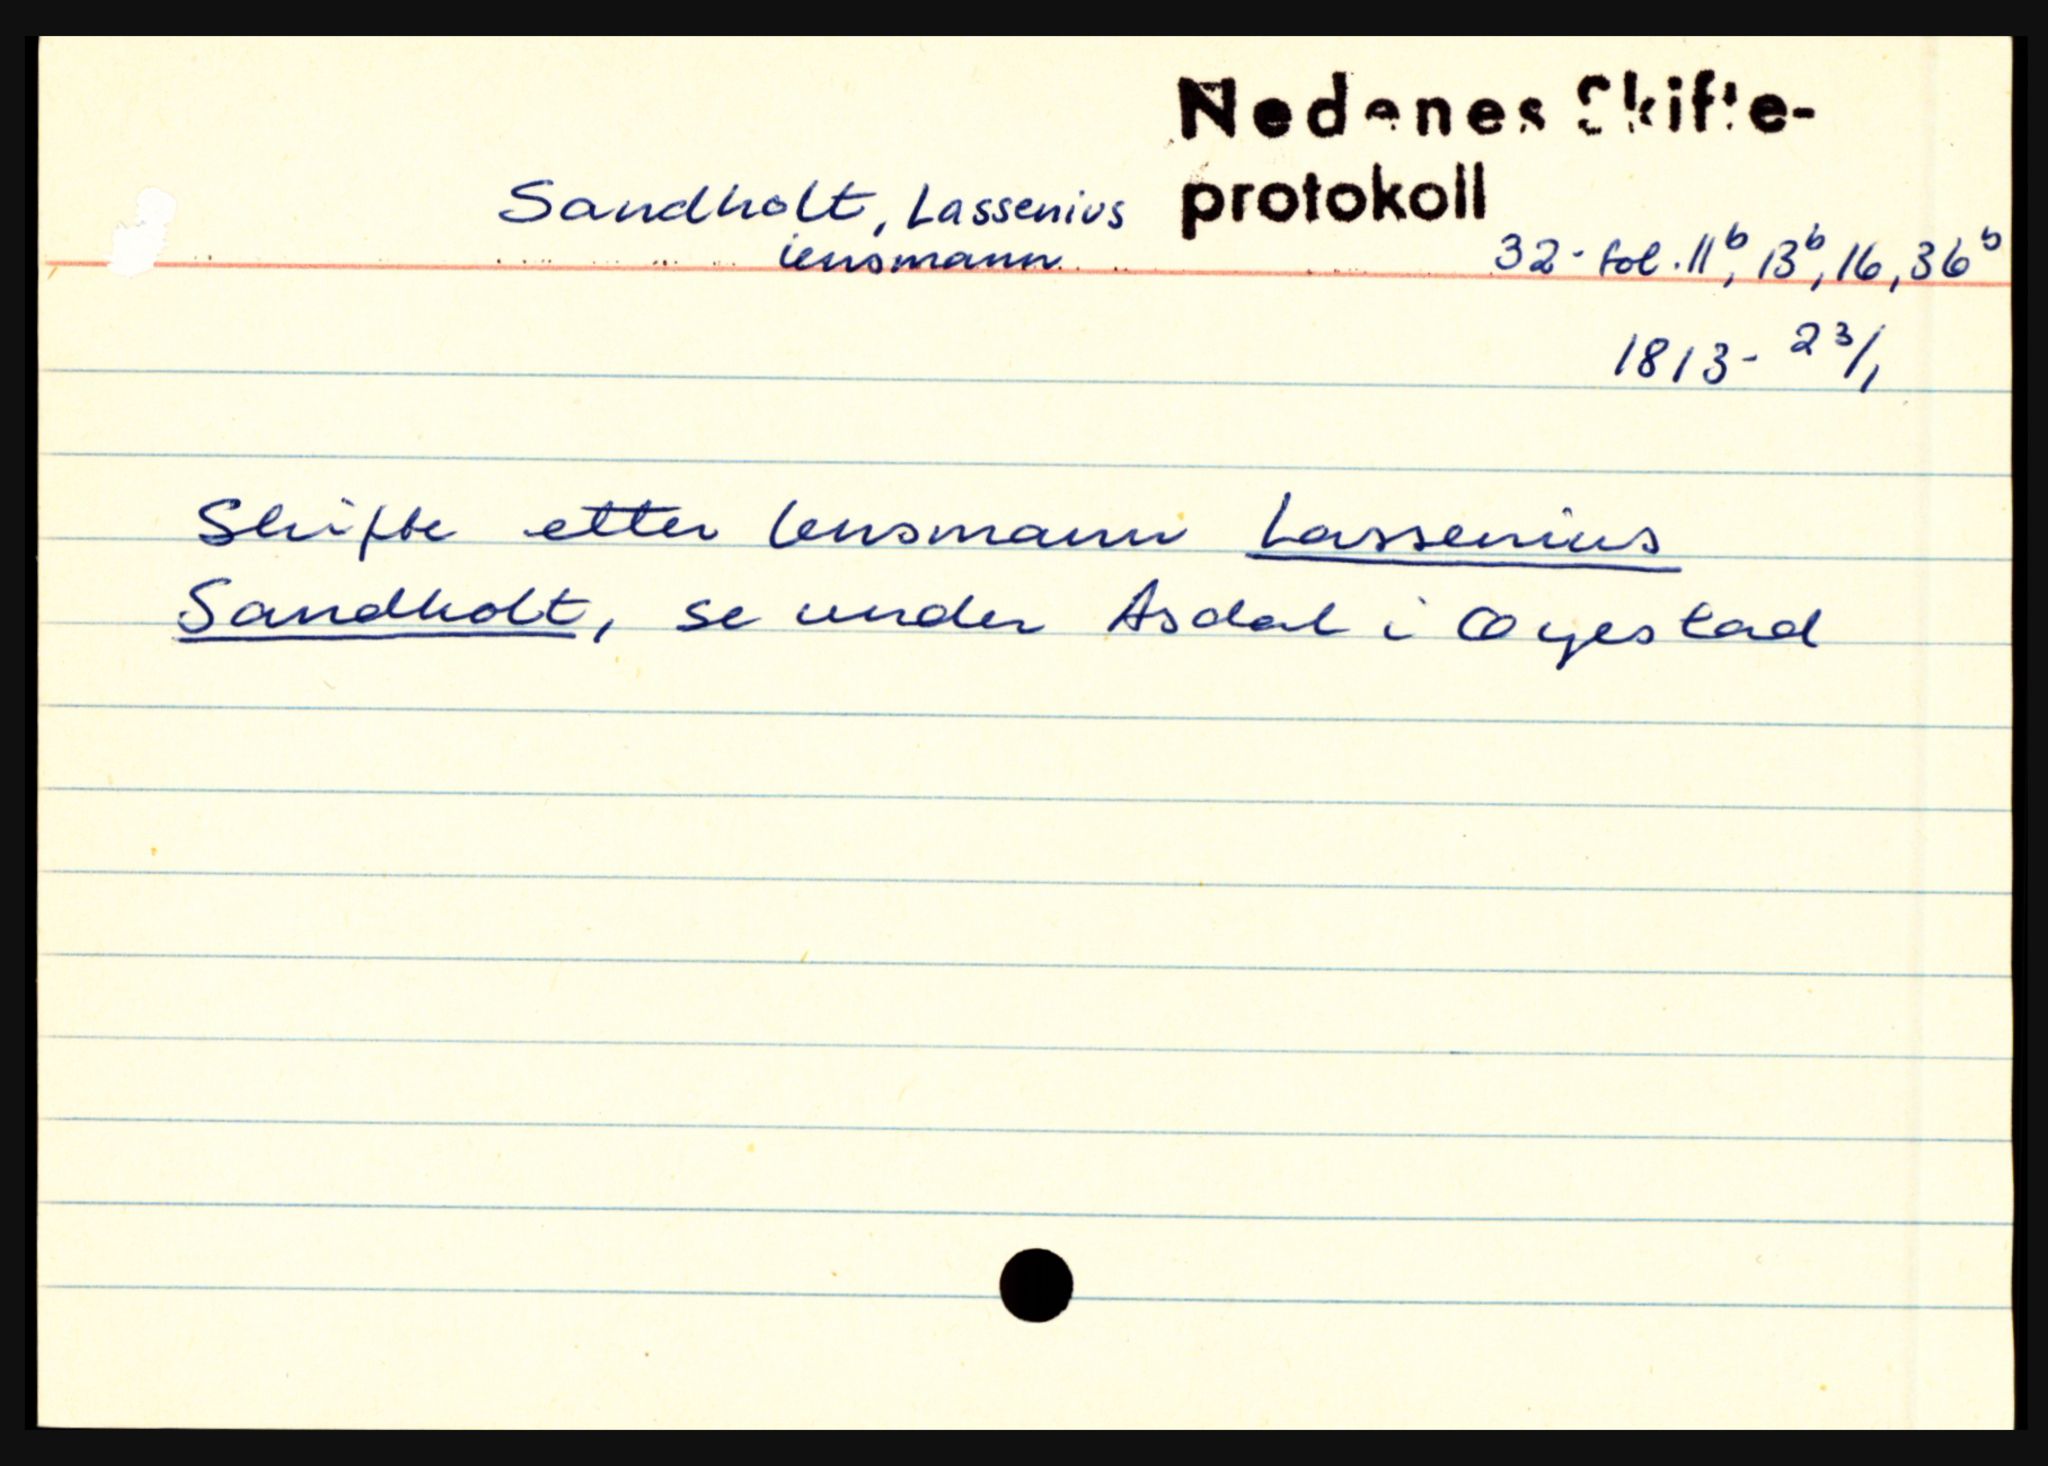 Nedenes Skifte-
protokoll
Sandholt, Lassenius
lensmann
32 - fol. 11b, 13b, 16, 36b
1813 - 23/1
Skifte etter lensmann Lassenius
Sandholt, se under Asdal i Øyestad